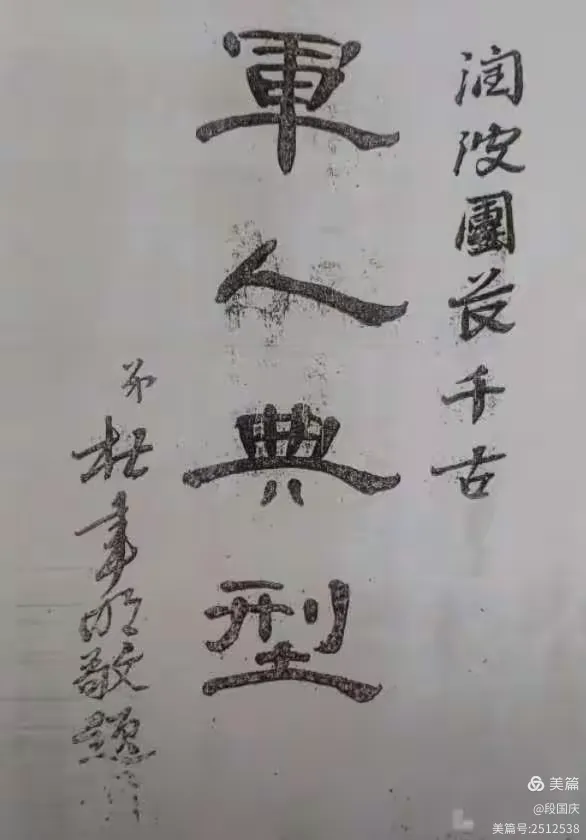 润陂團長千古
軍人典型
弟杜聿明敬題
美篇
@段国庆
美篇号:2512538